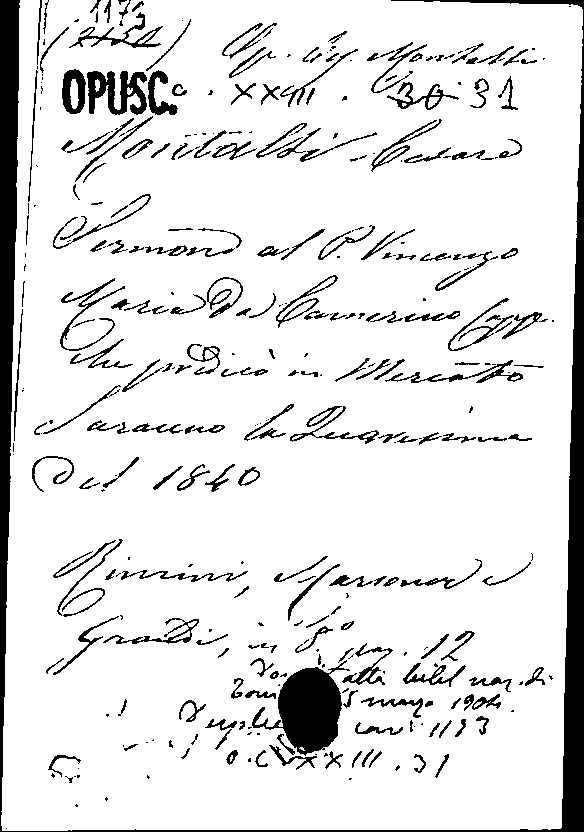 1173
(2151) Op. Cey. Montalti
OPUSC. c. XXIII. 30 31
Montalti Cesare
Sermone al P. Vincenzo
Maria Da Camerino Capp.
che predicò in Mercato
Saraceno la Quaresima
Del 1840
Rimini, Marsoner e
Grandi, in 8o pag. 12
fatta bibl naz. di
5 marzo 1904.
1173
O.C. XXIII. 31